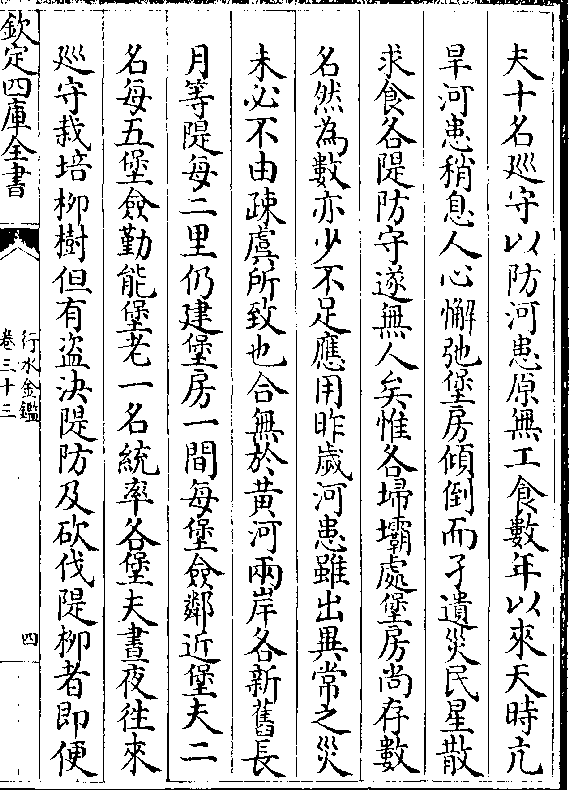 夫十名廵守以防河患原無工食數年以來天時亢
旱河患稍息人心懈弛堡房傾倒而孑遺災民星散
求食各隄防守遂無人矣惟各埽壩處堡房尚存數
名然為數亦少不足應用昨歲河患雖出異常之災
未必不由疎虞所致也合無於黄河兩岸各新舊長
月等隄每二里仍建堡房一間每堡僉鄰近堡夫二
名每五堡僉勤能堡老一名統率各堡夫晝夜徃來
廵守栽培柳樹但有盜決隄防及砍伐隄柳者即便
欽定四庫全書
行水金鑑
卷三十三
四